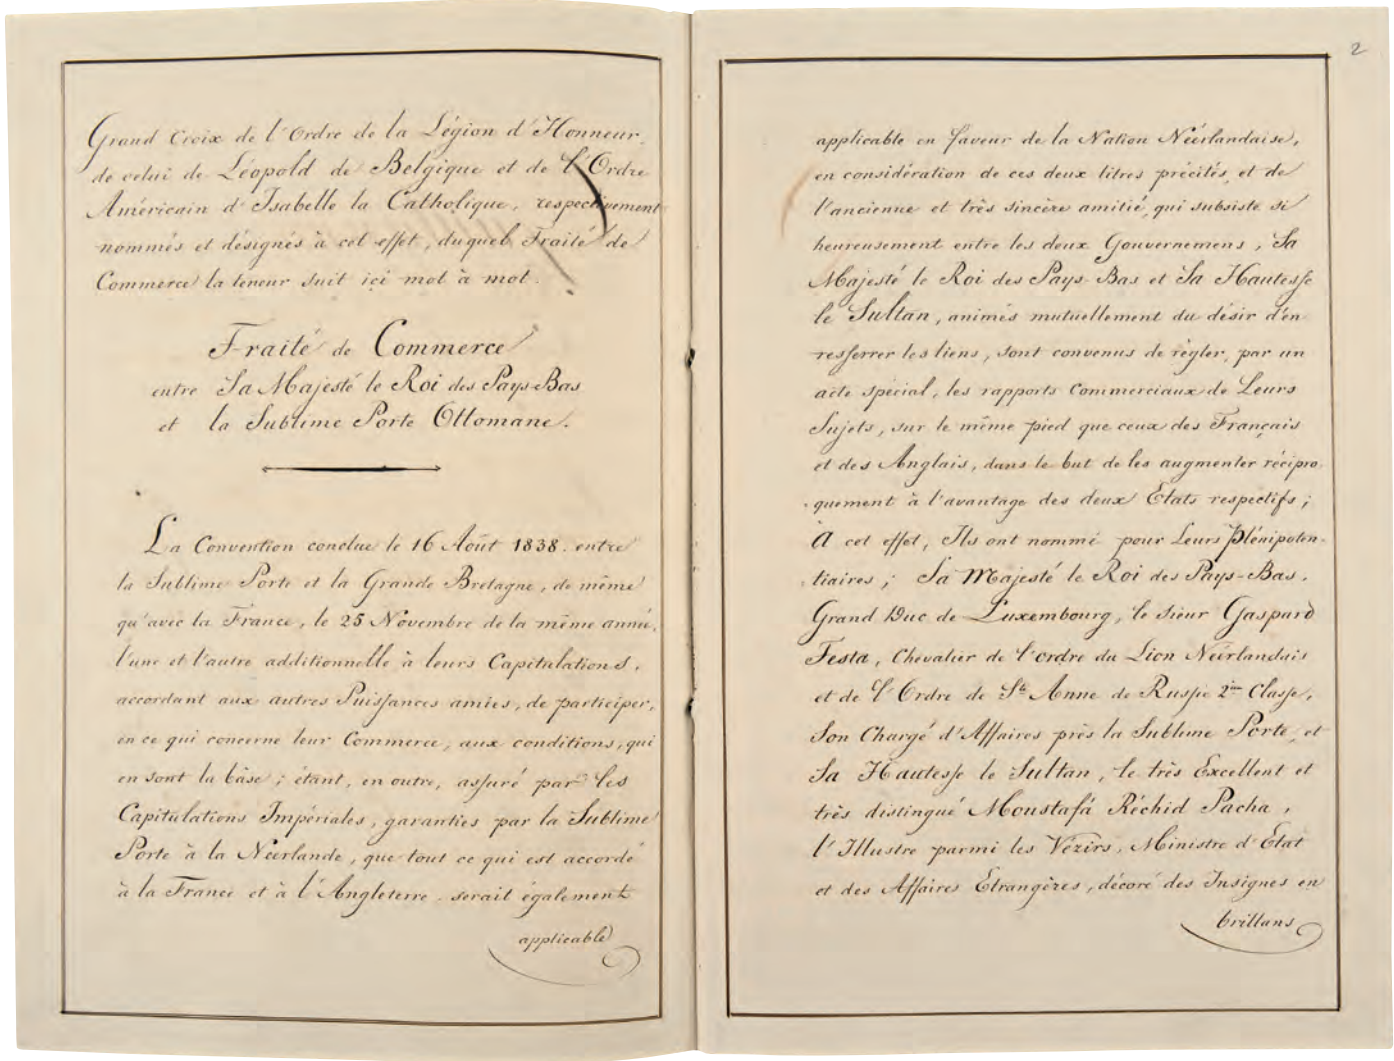 Grand Croix de l'Ordre de la Légion d'Honneur,
de celui de Léopold de Belgique et de l'Ordre
Américain d'Isabelle la Catholique, respectivement
nommés et désignés à cet effet, duquel Traité de
Commerce la teneur suit ici mot à mot.
Traité de Commerce
entre Sa Majesté le Roi des Pays-Bas
et la Sublime Porte Ottomane.
La Convention conclue le 16 Août 1838. entre
la Sublime Porte et la Grande Bretagne, de même
qu'avec la France, le 25 Novembre de la même année,
l'une et l'autre additionnelle à leurs Capitulations,
accordant aux autres Puissances amies, de participer,
en ce qui concerne leur Commerce, aux conditions, qui
en sont la bâse; étant, en outre, assuré par les
Capitulations Impériales, garanties par la Sublime
Porte à la Néerlande, que tout ce qui est accordé
à la France et à l'Angleterre, serait également
applicable
2
applicable en faveur de la Nation Néerlandaise,
en considération de ces deux titres précités, et de
l'ancienne et très sincère amitié, qui subsiste si
heureusement entre les deux Gouvernemens, Sa
Majesté le Roi des Pays-Bas et Sa Hautesse
le Sultan, animés mutuellement du désir d'en
resserrer les liens, sont convenus de règler, par un
acte spécial, les rapports Commerciaux de Leurs
Sujets, sur le même pied que ceux des Français
et des Anglais, dans le but de les augmenter récipro-
quement à l'avantage des deux Etats respectifs;
A cet effet, Ils ont nommé pour Leurs Plénipoten-
tiaires; Sa Majesté le Roi des Pays-Bas,
Grand Duc de Luxembourg, le Sieur Gaspard
Testa, Chevalier de l'ordre du Lion Néerlandais
et de l'Ordre de Ste Anne de Russie 2ème Classe,
Son Chargé d'Affaires près la Sublime Porte, et
Sa Hautesse le Sultan, le très Excellent et
très distingué Moustafá Réchid Pacha,
l'Illustre parmi les Vézirs, Ministre d'Etat
et des Affaires Etrangères, décoré des Insignes en
brillans